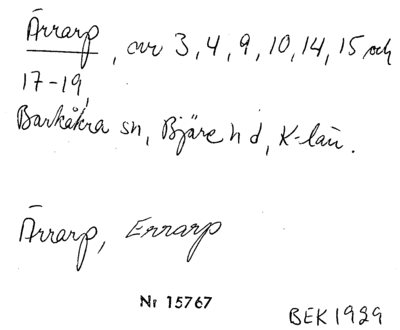 Ärrarp, nr 3, 4, 9, 10, 14, 15 och
17-19,
Barkåkra sn, Bjäre hd, K-län.
Ärrarp, Errarp
Nr 15767
BEK 1929